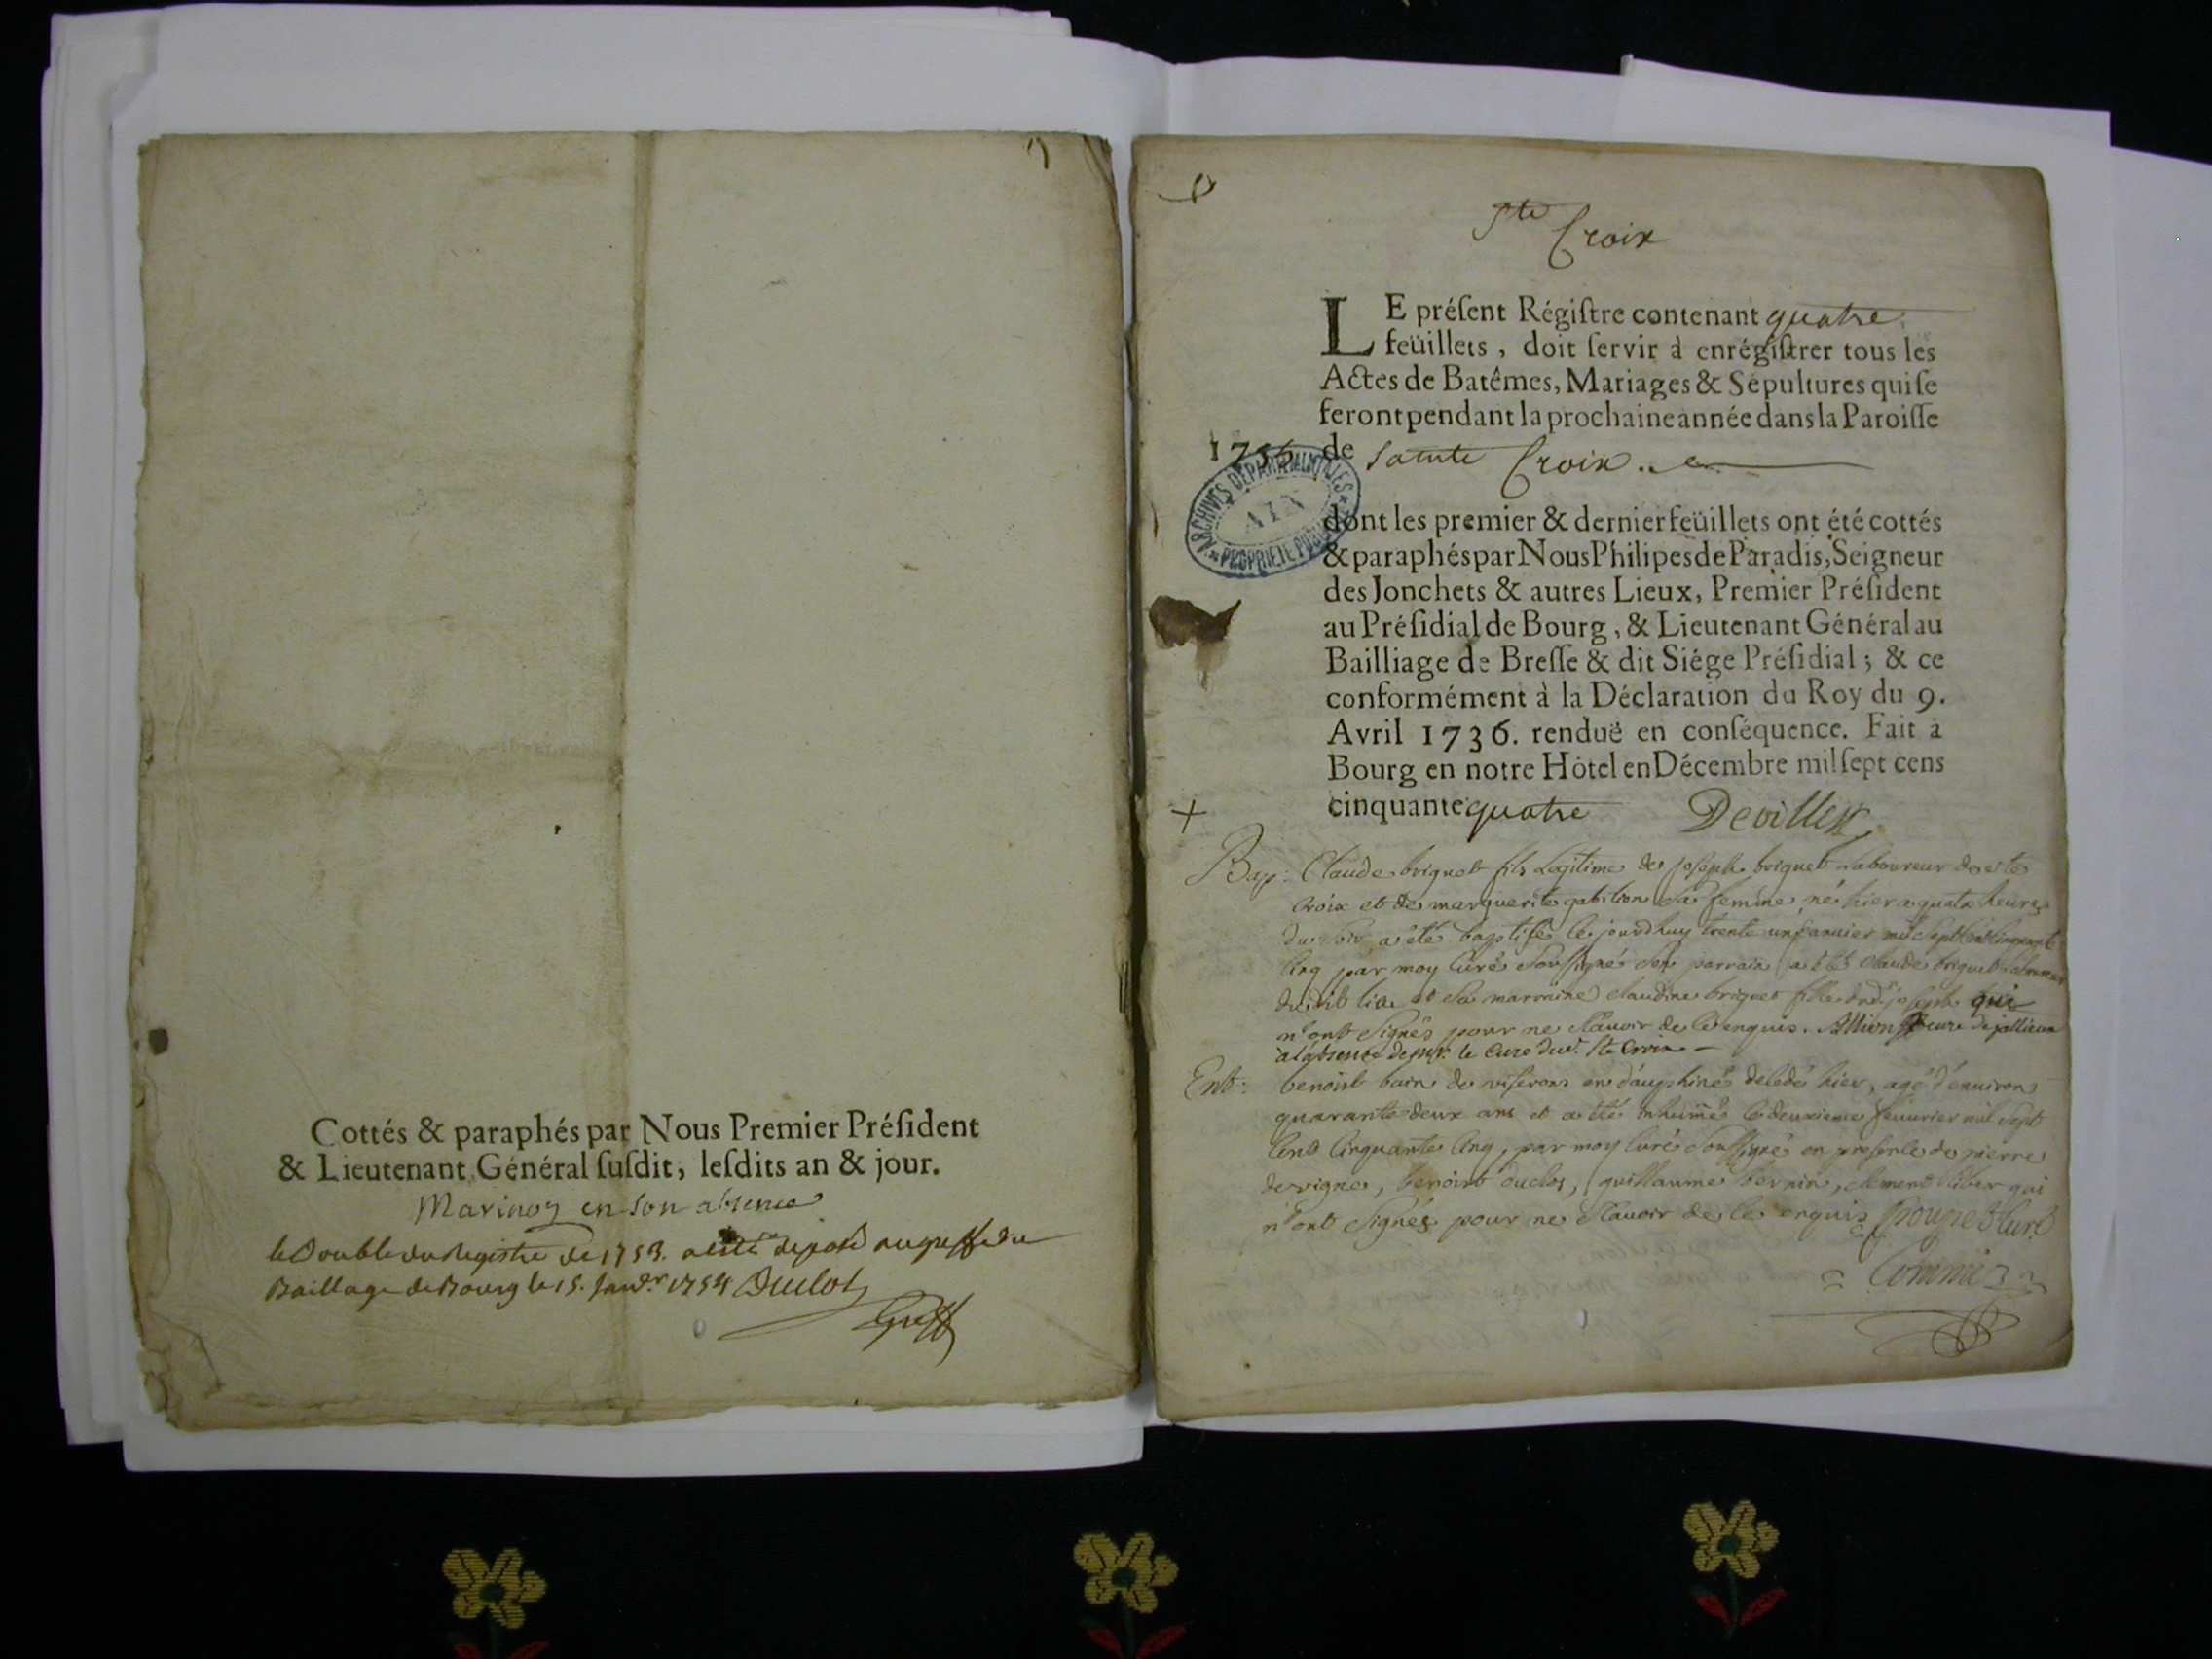 Cottés & paraphés par Nous Premier Président
& Lieutenant Général susdit, lesdits an & jour.
en son absence
le Double du Registre de 1753. a esté deposé au greffe du
Baillage de Bourg le 15. Janv.r 1754 Duclos
Greff
Ste
Croix
LE présent Régistre contenant quatre
feüillets, doit servir à enrégistrer tous les
Actes de Batêmes, Mariages & Sépultures qui se
feront pendant la prochaine année dans la Paroisse
de Sainte Croix.
ARCHIVES DEPARTEMENTALES
AIN
PROPRIETE PUBLIQUE
dont les premier & dernier feüillets ont été cottés
& paraphés par Nous Philipes de Paradis, Seigneur
des Jonchets & autres Lieux, Premier Président
au Présidial de Bourg, & Lieutenant Général au
Bailliage de Bresse & dit Siége Présidial; & ce
conformément à la Déclaration du Roy du 9.
Avril 1736. renduë en conséquence. Fait à
Bourg en notre Hôtel en Décembre mil sept cens
cinquante quatre
Bap: Claude briguet fils legitime de joseph briguet laboureur de ste
Croix et de marguerite sa femme, né hier a quatre heures
du soir a été baptisé le jourdhuy trente un janvier mil sept cent cinquante
cinq par moy curé soussigné son parrain a été claude briguet laboureur
dudit lieu et sa marraine claudine briguet fille dud. joseph qui
n'ont signés pour ne sçavoir de ce enquis. Allion curé de
a l'absence de mr. le curé dud. Ste Croix
Ent: benoist de en dauphiné decedé hier, agé d'environ
quarante deux ans et a été inhumé le deuxieme fevrier mil sept
cent cinquante cinq, par moy curé soussigné en presence de pierre
devigne, benoist duclos, guillaume clement qui
n'ont signés pour ne sçavoir de ce enquis curé